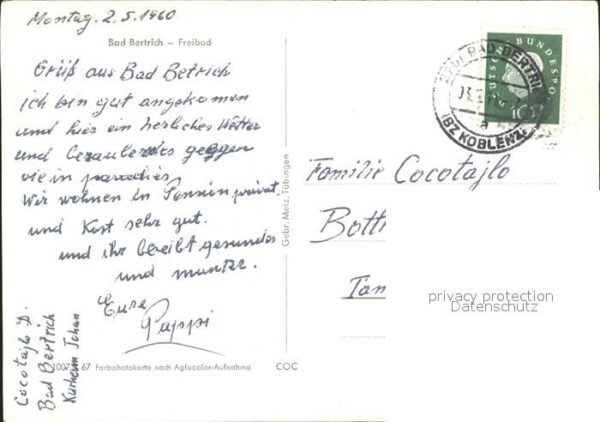 Montag. 2.5.1960
Bad Bertrich – Freibad
Grüß aus Bad Betrich
ich bin gut angekomen
und hier ein herliches Wetter
und bezauberdes geggen
wie in paradies
Wir wohnen in Pension privat.
und Kost sehr gut.
und ihr bleibt gesundes
und munter.
Eure
Pappi
Cocotajlo D.
Bad Bertrich
Kurheim Johan
67 Farbphotokarte nach Agfacolor-Aufnahme
COC
Gebr. Metz, Tübingen
DEUTSCHE BUNDESPOST
10
BAD BERTRICH
a
(BZ KOBLENZ)
Familie Cocotajlo
Bott
Tan
privacy protection
Datenschutz